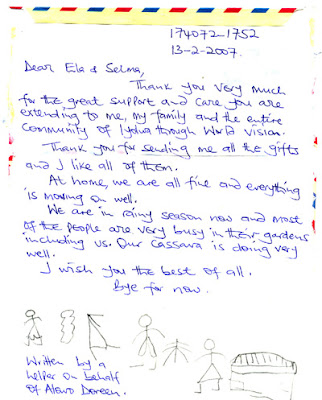 174072-1752
13-2-2007.
Dear Ela & Selma,
Thank you very much
for the great support and care you are
extending to me, my family and the entire
Community of Lydia through World Vision.
Thank you for sending me all the gifts
and I like all of them.
At home, we are all fine and everything
is moving on well.
We are in rainy season now and most
of the people are very busy in their gardens
including us. Our Cassava is doing very
well.
I wish you the best of all.
Bye for now.
Written by a
helper on behalf
of Doreen.